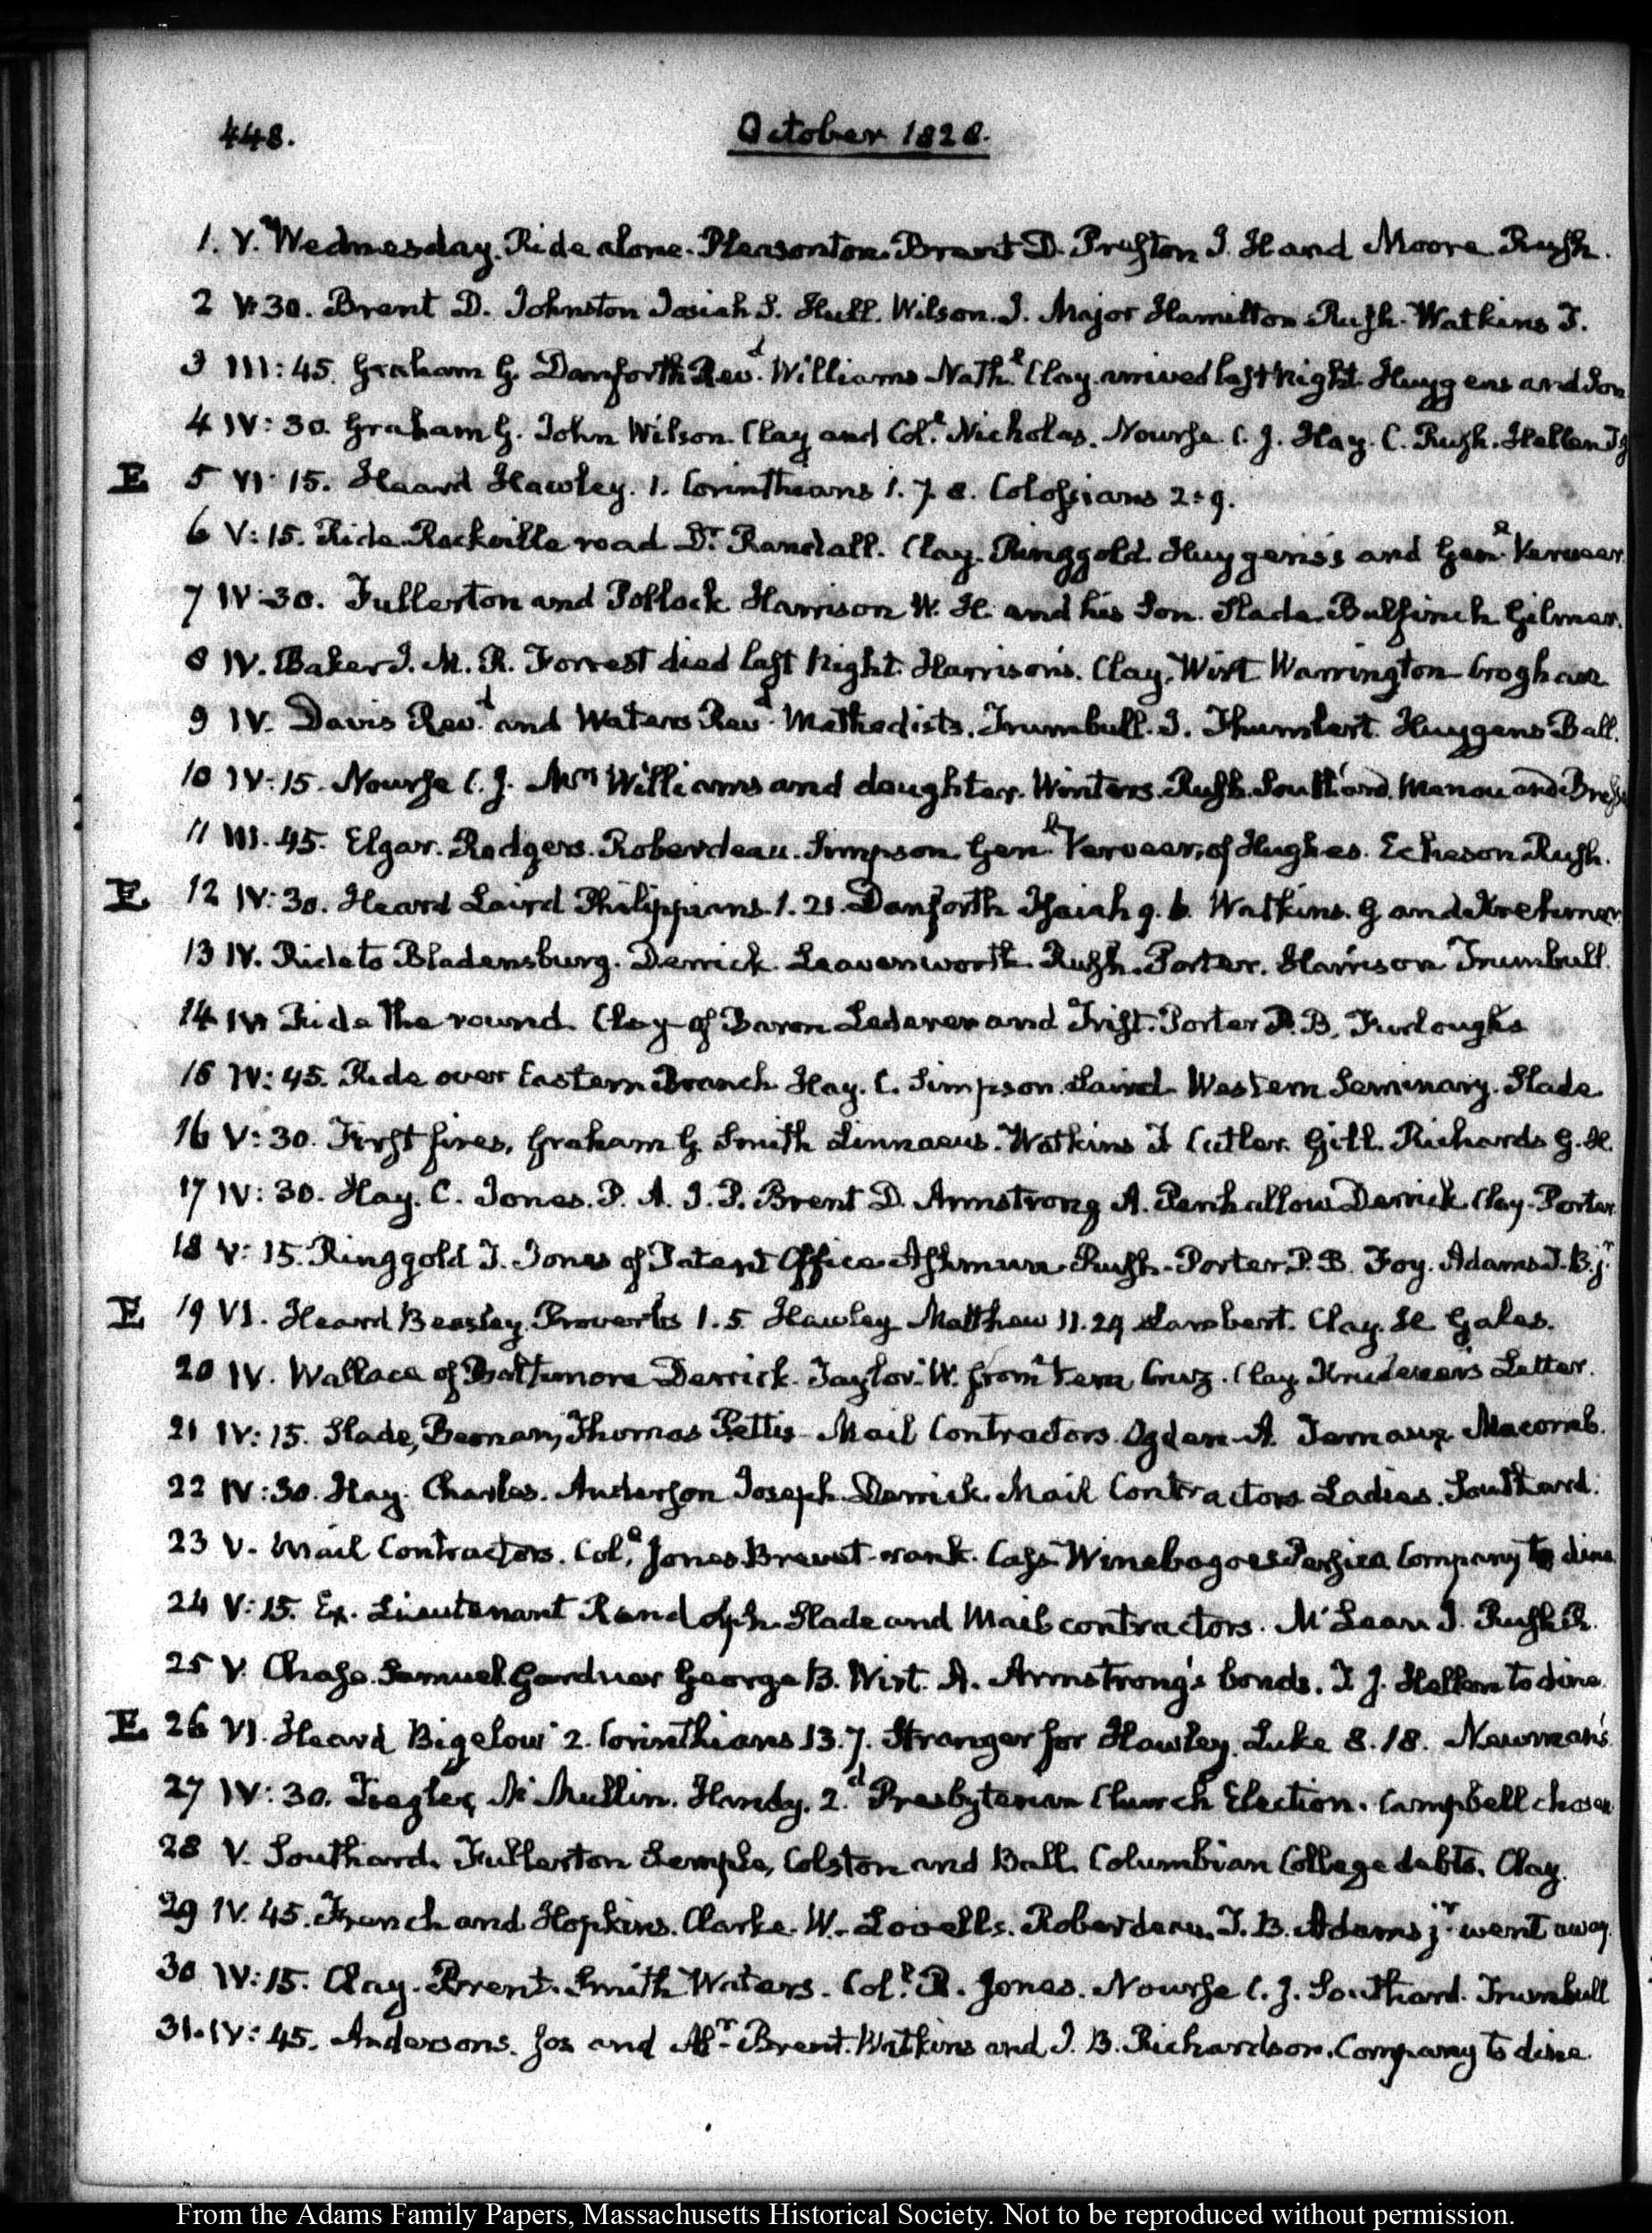 448. October 1828.
1. V. Wednesday. Ride alone. Pleasonton. Brent D. Preston I. H and Moore Rush.
2 V:30. Brent D. Johnston Josiah S. Hull. Wilson. J. Major Hamilton Rush. Watkins T.
3 III:45. Graham G. Danforth Revd. Williams Nathl. Clay arrived last Night. Huygens and Son
4 IV:30. Graham G. John Wilson. Clay and Coll. Nicholas. Nourse C. J. Hay. C. Rush. Hellen
E 5 VI:15. Heard Hawley. 1. Corinthians 1. 7. 8. Colossians 2:9.
6 V:15. Ride Rockville road Dr. Randall. Clay. Ringgold. Huygens's and Genl. Verveer
7 IV:30. Fullerton and Pollock Harrison W. H. and his Son. Slade Bulfinch Gilmer.
8 IV. Baker J. M. R. Forrest died last Night. Harrison's. Clay, Wirt Warrington Croghan
9 IV. Davis Revd. and Waters Revd. Methodists. Trumbull. J. Humbert. Huygens Ball.
10 IV:15. Nourse C. J. Mrs Williams and daughter. Winters. Rush. Southard. Manou and
11 III.45. Elgar. Rodgers. Roberdeau. Simpson. Genl. Verveer, of Hughes. Echeson Rush.
E 12 IV:30. Heard Laird Philippians. 1. 21. Danforth Isaiah 9. 6. Watkins. G. and Kretchmar
13 IV. Ride to Bladensburg. Derrick. Leavenworth. Rush. Porter. Harrison Trumbull.
14 IV Ride the round. Clay of Baron Lederer and Trist. Porter P. B. Furloughs
15 IV:45. Ride over Eastern Branch. Hay. C. Simpson. Laird Western Seminary. Slade
16 V:30. First fires, Graham G. Smith Linnaeus. Watkins T Cutler. Gill. Richards G. H.
17 IV:30. Hay. C. Jones. P. A. J. P. Brent D. Armstrong A. Penhallow Derrick Clay. Porter
18 V:15. Ringgold T. Jones of Patent Office Ashmun Rush. Porter P. B. Foy. Adams T. B. jr
E 19 VI. Heard Beasley. Proverbs 1. 5. Hawley Matthew 11. 29 Lambert. Clay. H Gales.
20 IV. Wallace of Baltimore Derrick. Taylor W. from Vera Cruz. Clay Krudener's Letter.
21 IV:15. Slade, Beeman, Thomas Pettis Mail Contractors Ogden A. Ternaux Macomb.
22 IV:30. Hay. Charles. Anderson Joseph. Derrick. Mail Contractors Ladies. Southard.
23 V. Mail Contractors. Coll. Jones Brevet-rank. Cass Winebagoes Persico Company to dine
24 V:15. Ex. Lieutenant Randolph. Slade and Mail contractors. McLean J. Rush R.
25 V. Chase Samuel Gardner George B. Wirt. A. Armstrong's bonds. T. J. Hellen to dine.
E 26 VI. Heard Bigelow 2. Corinthians 13. 7. Stranger for Hawley. Luke 8. 18. Newman's
27 IV:30. McMullin. Handy. 2.d Presbyterian Church Election. Campbell chosen
28 V. Southard. Fullerton Semple, Colston and Ball. Columbian College debts. Clay.
29 IV.45. French and Hopkins. Clarke. W. Lovells. Roberdeau. T. B. Adams jr. went away
30 IV:15. Clay. Brent. Smith Waters. Coll. R. Jones. Nourse C. J. Southard. Trumbull
31. IV:45. Andersons. Jos and Brent. Watkins and J. B. Richardson. Company to dine.
From the Adams Family Papers, Massachusetts Historical Society. Not to be reproduced without permission.